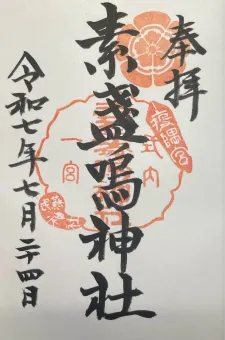 奉拝
素盞嗚神社
令和七年七月二十四日
式内
一宮
疫隅宮